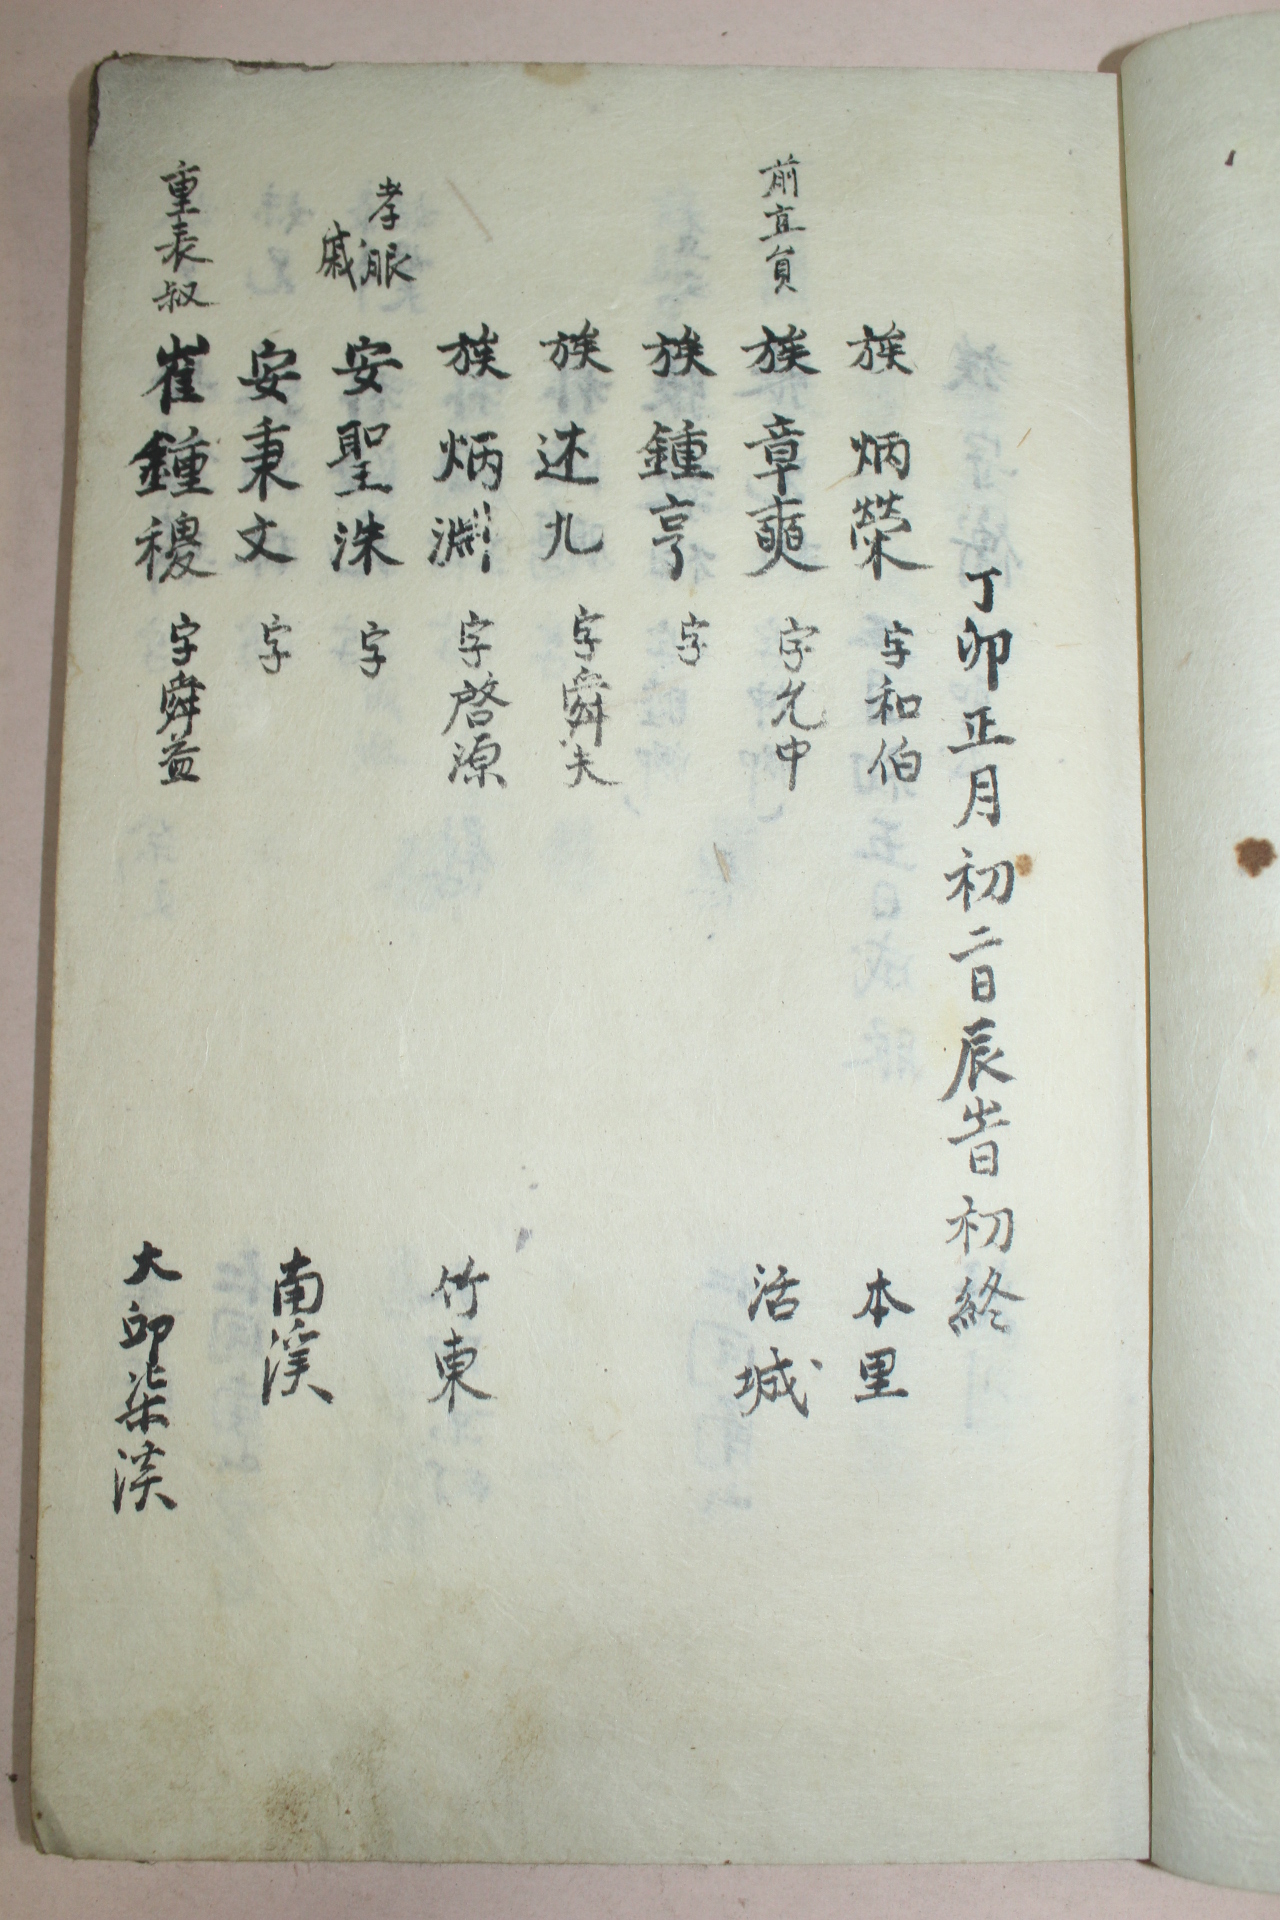 丁卯正月初二日辰旹初終
族炳榮 字和伯 本里
前直員 族章奭 字允中 活城
族鍾亨 字
族述九 字舜夫
族炳淵 字啓源 竹東
孝服 戚 安聖洙 字
安秉文 字 南溪
重表叔 崔鍾稷 字舜益 大邱柒溪